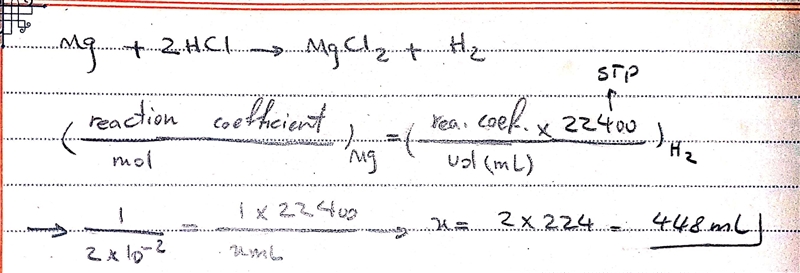 Mg + 2HCl → MgCl₂ + H₂
STP
↑
(reaction coefficient / mol)Mg = (rea. coef. × 22400 / vol (mL))H₂
→ 1 / 2×10⁻² = 1 × 22400 / x mL → x = 2 × 224 = 448 mL